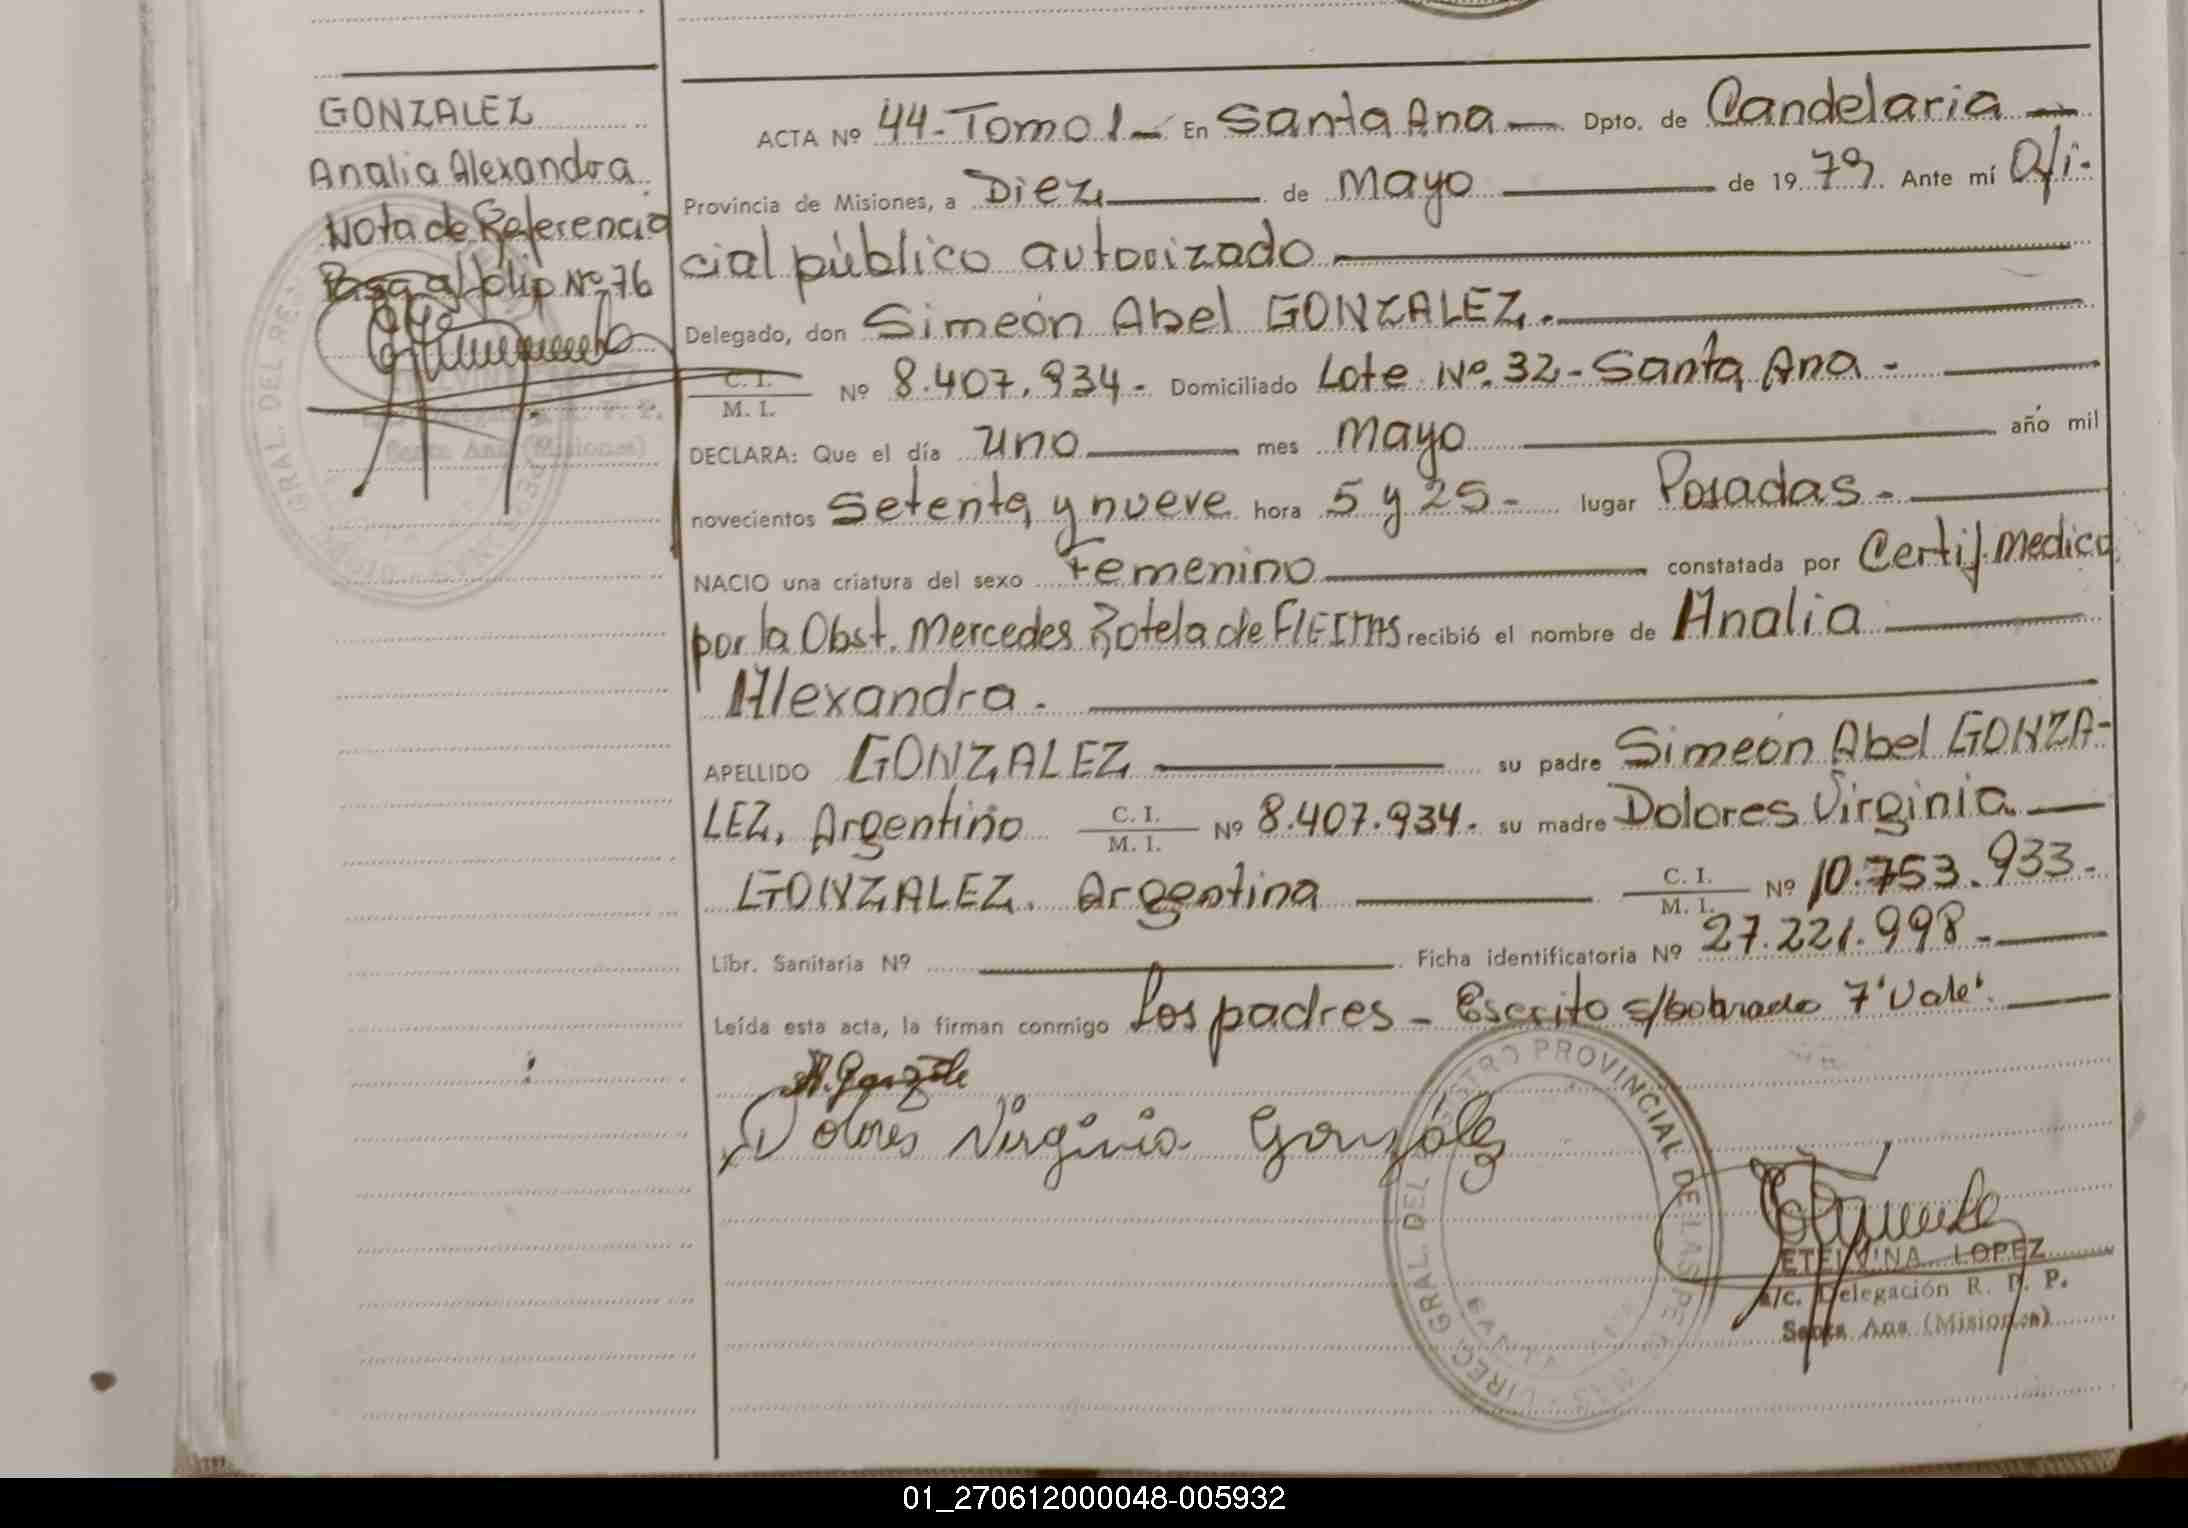 GONZALEZ
Analia Alexandra
Nota de Referencia
Pasa al folio Nº 76
ACTA Nº 44 - Tomo 1 - En Santa Ana - Dpto. de Candelaria -
Provincia de Misiones, a Diez de Mayo de 1979 Ante mí Ofi-
cial público autorizado
Delegado, don Simeón Abel GONZALEZ.
C. I.
M. I. Nº 8.407.934- Domiciliado Lote Nº 32 - Santa Ana -
DECLARA: Que el día uno mes Mayo año mil
novecientos setenta y nueve hora 5 y 25 - lugar Posadas -
NACIO una criatura del sexo Femenino constatada por Certif. Medico
por la Obst. Mercedes Rotela de FLEITAS recibió el nombre de Analia
Alexandra.
APELLIDO GONZALEZ su padre Simeón Abel GONZA-
LEZ, Argentino C. I. M. I. Nº 8.407.934- su madre Dolores Virginia
GONZALEZ. Argentina C. I. M. I. Nº 10.753.933-
Libr. Sanitaria Nº Ficha identificatoria Nº 27.221.998 -
Leída esta acta, la firman conmigo Los padres - Escrito s/borrado 7 "Vale".
A. Gonzále
Dolores Virginia González
DIREC. GRAL. DEL REGISTRO PROVINCIAL DE LAS PERSONAS
SANTA ANA
ETELVINA LOPEZ
a/c. Delegación R. P. P.
Santa Ana (Misiones)
01_270612000048-005932